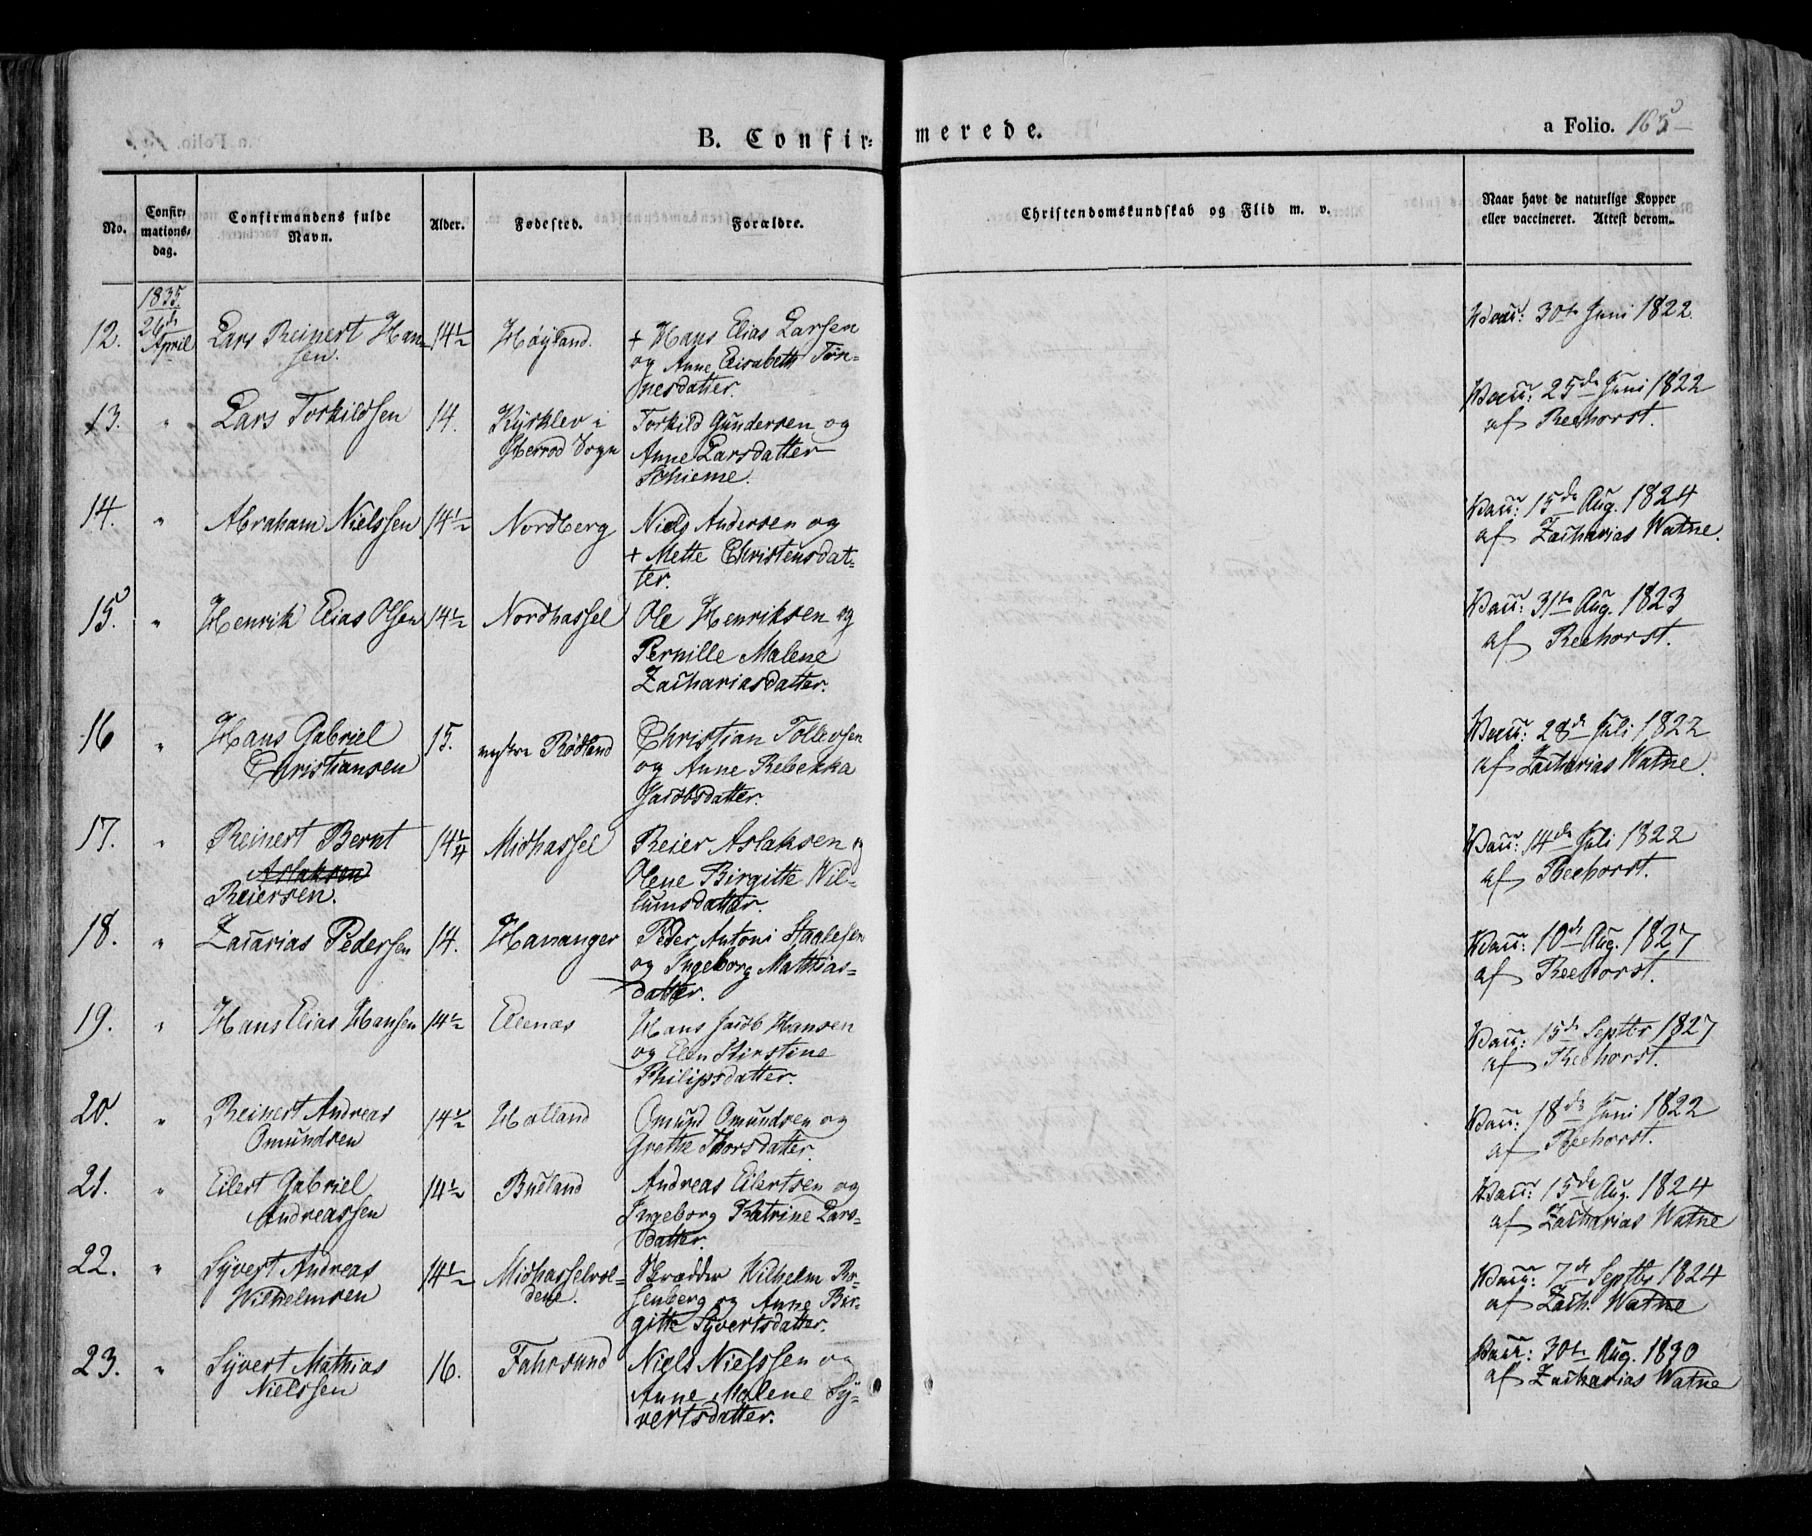 B. Confir-merede.
a Folio. 165
No.
Confir-
mations-
dag.
Confirmandens fulde
Navn.
Alder.
Fødested.
Forældre.
Christendomskundskab og Flid m. v.
Naar havt de naturlige Kopper
eller vaccineret. Attest derom.
1835.
12. 26de April Lars Reinert Han-
sen. 14½ Høyland. + Hans Elias Larsen
og Anne Elisabeth Tøn-
nesdatter. Vacc: 30te Juni 1822.
13. " Lars Torkildsen 14. i
Herrod Sogn Torkild Gundersen og
Anne Larsdatter
Schieme. Vacc: 25de Juni 1822
af Reehorst.
14. " Abraham Nielssen 14½ Nordberg Niels Andersen og
+ Mette Christensdat-
ter. Vacc: 15de Aug. 1824
af Zacharias Watne.
15. " Henrik Elias Olsen 14½ Nordhassel Ole Henriksen og
Pernille Malene
Zachariasdatter. Vacc: 31te Aug. 1823
af Reehorst.
16 " Hans Gabriel
Christiansen 15. Rødland Christian Tollevsen
og Anne Rebekka
Jacobsdatter. Vacc: 28de Juli 1822
af Zacharias Watne.
17. " Reinert Bernt
Aslaksen
Reiersen. 14¼ Midhassel Reier Aslaksen og
Olene Birgitte Wil-
lumsdatter. Vacc: 14de Juli 1822
af Reehorst.
18. " Zacarias Pedersen 14. Hananger Peder Antoni Staalesen
og Ingeborg Mathias-
datter. Vacc: 10de Aug. 1827
af Reehorst.
19. " Hans Elias Hansen 14½ Eienæs Hans Jacob Hansen
og Elen Kirstine
Philipsdatter. Vacc: 15de Septbr 1827
af Reehorst.
20. " Reinert Andreas
Omundsen 14½ Hatland Omund Omundsen og
Grethe Thorsdatter. Vacc: 18de Juni 1822
af Reehorst.
21. " Eilert Gabriel
Andreassen 14½ Buland Andreas Eilertsen og
Ingeborg Katrine Lars-
datter. Vacc: 15de Aug. 1824
af Zacharias Watne
22. " Syvert Andreas
Wilhelmsen 14½ Midhasselvol-
dene. Skrædder Wilhelm Ro-
senberg og Anne Bir-
gitte Syvertsdatter. Vacc: 7de Septbr 1824
af Zach. Watne
23. " Syvert Mathias
Nielssen 16. Fahrsund Niels Nielssen og
Anne Malene Sy-
vertsdatter. Vacc: 30te Aug. 1830
af Zacharias Watne